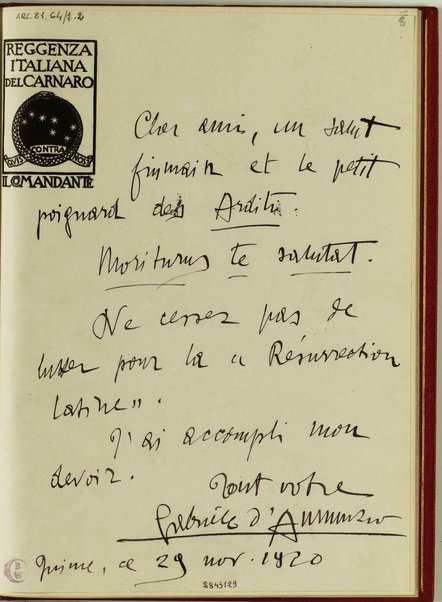 ARC. 21. 64/1.2
8
REGGENZA
ITALIANA
DEL CARNARO
QUIS CONTRA NOS
IL COMANDANTE
Cher ami, un salut
et le petit
poignard des Arditi.
Moriturus te salutat.
Ne cessez pas de
lutter pour la « Résurrection
latine ».
J'ai accompli mon
devoir.
Tout votre
Gabriele d'Annunzio
Fiume, ce 29 nov. 1920
2843129